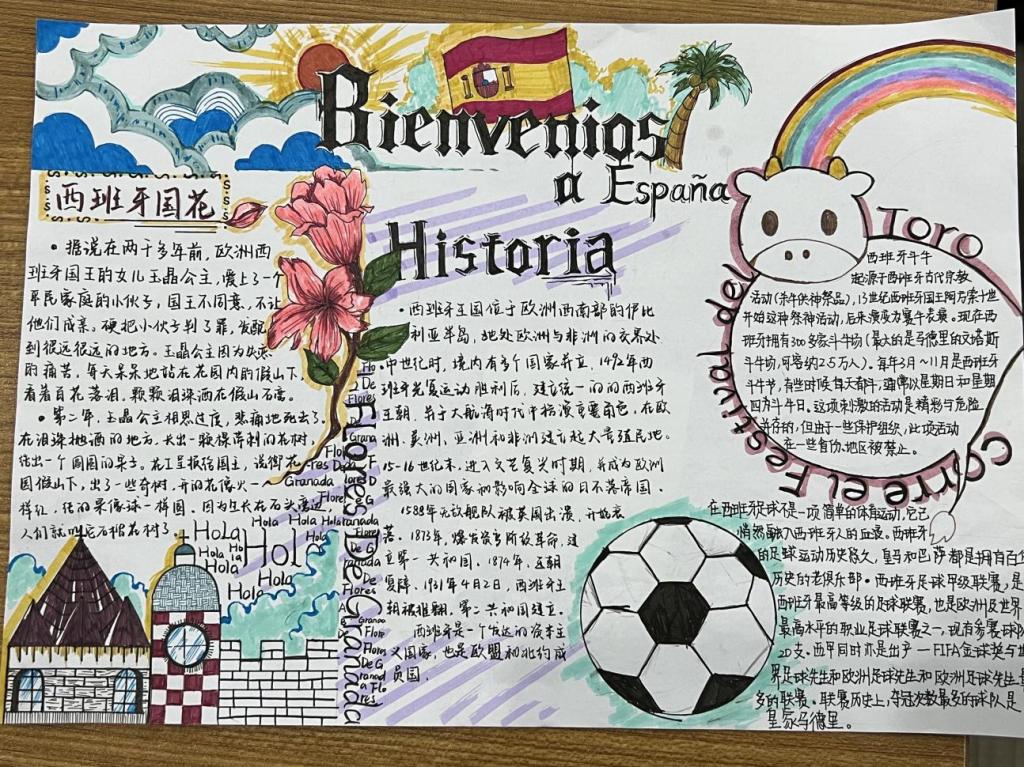 Bienvenios
a España
西班牙国花
• 据说在两千多年前，欧洲西
班牙国王的女儿玉晶公主，爱上了一个
平民家庭的小伙子，国王不同意，不让
他们成亲。硬把小伙子判了罪，发配
到很远很远的地方。玉晶公主因为失恋
的痛苦，每天呆呆地站在花园内的假山下，
看着百花落泪，颗颗泪珠洒在假山石旁。
• 第二年，玉晶公主相思过度，悲痛地死去了，
在泪珠抛洒的地方，长出一颗得奔利的花树，
结出一个圆圆的果子。花工呈报给国王，说街花
园假山下，出了一些奇树，开的花像火一
样红，结的果像球一样圆，因为生长在石头旁边，
人们就叫它石榴花树了。
Historia
• 西班牙王国位于欧洲西南部的伊比
利亚半岛，地处欧洲与非洲的交界处
中世纪时，境内有多个国家并立，1492年西
班牙光复运动胜利后，建立统一的的西班牙
王朝，并于大航海时代中扮演重要角色，在欧
洲、美洲、亚洲和非洲建立起大量殖民地。
15-16世纪末，进入文艺复兴时期，并成为欧洲
最强大的国家和影响全球的日不落帝国。
1588年无敌舰队被英国击溃，开始衰
落。1873年，爆发资产阶级革命，建
立第一共和国，1874年，王朝
复辟，1931年4月2日，西班牙王
朝被推翻，第二共和国建立。
西班牙是一个发达的资本主
义国家，也是欧盟和北约成
员国。
Flores De Granada
Hola Hola Hola Hola
Hola
Hola
Hola
Toro
Festival del
Corre el
西班牙斗牛
起源于西班牙古代宗教
活动（杀牛供神祭品），13世纪西班牙国王阿方索十世
开始这种祭神活动，后来演变为赛牛表演。现在西
班牙拥有300多家斗牛场（最大的是马德里的文塔斯
斗牛场，可容纳2.5万人）。每年3月～11月是西班牙
斗牛节，有些时候每天都斗，通常以星期日和星期
四为斗牛日。这项刺激的活动是精彩与危险
并存的，但由于一些保护组织，此项活动
在一些省份、地区被禁止。
在西班牙足球不是一项简单的体育运动，它已
悄然融入西班牙人的血液。西班牙
的足球运动历史悠久，皇马和巴萨都是拥有百
历史的老俱乐部。西班牙足球甲级联赛，是
西班牙最高等级的足球联赛，也是欧洲及世界
最高水平的职业足球联赛之一，现有参赛球队
20支。西甲同时亦是出产一FIFA金球奖与世
界足球先生和欧洲足球先生和欧洲足球先生
多的联赛。联赛历史上，夺冠次数最多的球队是
皇家马德里。